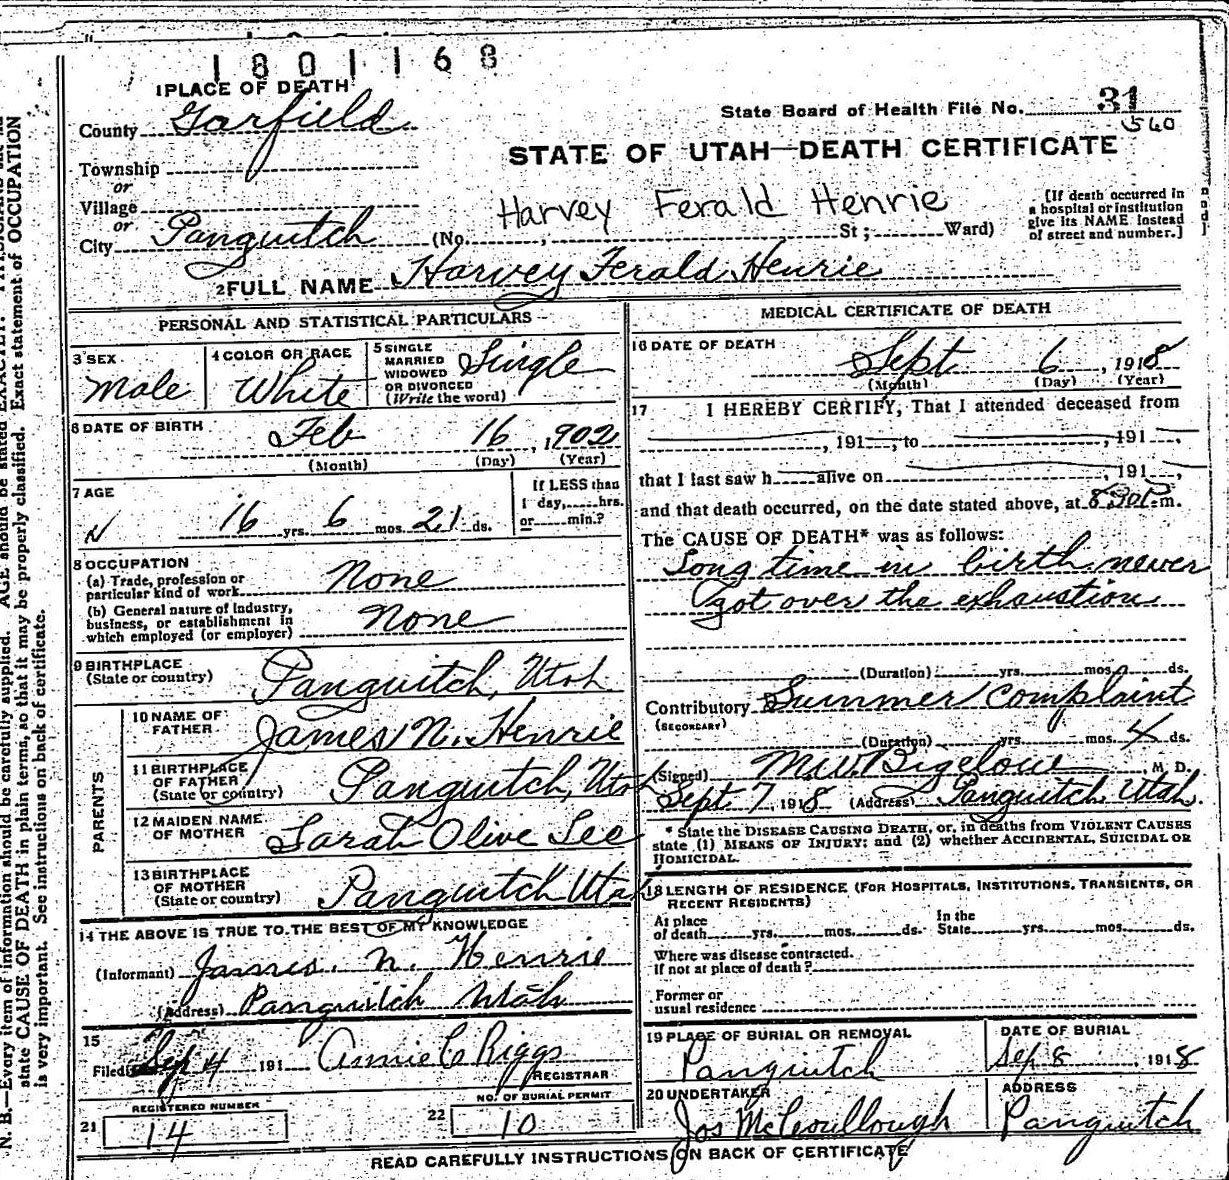 1801168
1 PLACE OF DEATH
State Board of Health File No. 31
560
County Garfield
STATE OF UTAH—DEATH CERTIFICATE
Township
or
Village
or
City Panguitch (No. , St; Ward)
Harvey Ferald Henrie
[If death occurred in
a hospital or institution
give its NAME instead
of street and number.]
2 FULL NAME Harvey Ferald Henrie
PERSONAL AND STATISTICAL PARTICULARS
3 SEX
Male
4 COLOR OR RACE
White
5 SINGLE
MARRIED
WIDOWED
OR DIVORCED
(Write the word)
Single
6 DATE OF BIRTH
Feb 16, 1902
(Month) (Day) (Year)
7 AGE
16 yrs. 6 mos. 21 ds.
If LESS than
1 day, hrs.
or min.?
8 OCCUPATION
(a) Trade, profession or
particular kind of work None
(b) General nature of industry,
business, or establishment in
which employed (or employer) None
9 BIRTHPLACE
(State or country) Panguitch, Utah
PARENTS
10 NAME OF
FATHER James N. Henrie
11 BIRTHPLACE
OF FATHER
(State or country) Panguitch, Utah
12 MAIDEN NAME
OF MOTHER Sarah Olive Lee
13 BIRTHPLACE
OF MOTHER
(State or country) Panguitch Utah
14 THE ABOVE IS TRUE TO THE BEST OF MY KNOWLEDGE
(Informant) James N. Henrie
(Address) Panguitch Utah
15
Filed Sep 4 191 Annie C Riggs
REGISTRAR
REGISTERED NUMBER
21 14
NO. OF BURIAL PERMIT
22 10
MEDICAL CERTIFICATE OF DEATH
16 DATE OF DEATH
Sept 6, 1918
(Month) (Day) (Year)
17 I HEREBY CERTIFY, That I attended deceased from
, 191 , to , 191 ,
that I last saw h alive on , 191 ,
and that death occurred, on the date stated above, at 8 30 P m.
The CAUSE OF DEATH* was as follows:
Long time in birth never
got over the exhaustion
(Duration) yrs. mos. ds.
Contributory Summer complaint
(SECONDARY)
(Duration) yrs. mos. 4 ds.
(Signed) M.W. Bigelow, M. D.
Sept. 7 1918 (Address) Panguitch Utah.
* State the DISEASE CAUSING DEATH, or, in deaths from VIOLENT CAUSES
state (1) MEANS OF INJURY; and (2) whether ACCIDENTAL, SUICIDAL OR
HOMICIDAL.
18 LENGTH OF RESIDENCE (FOR HOSPITALS, INSTITUTIONS, TRANSIENTS, OR
RECENT RESIDENTS)
At place
of death yrs. mos. ds.
In the
State yrs. mos. ds.
Where was disease contracted.
if not at place of death?
Former or
usual residence
19 PLACE OF BURIAL OR REMOVAL
Panguitch
DATE OF BURIAL
Sep 8, 1918
20 UNDERTAKER
Jos McCoullough
ADDRESS
Panguitch
READ CAREFULLY INSTRUCTIONS ON BACK OF CERTIFICATE
N. B.—Every item of information should be carefully supplied. AGE should be stated EXACTLY.
state CAUSE OF DEATH in plain terms, so that it may be properly classified. Exact statement of OCCUPATION
is very important. See instructions on back of certificate.